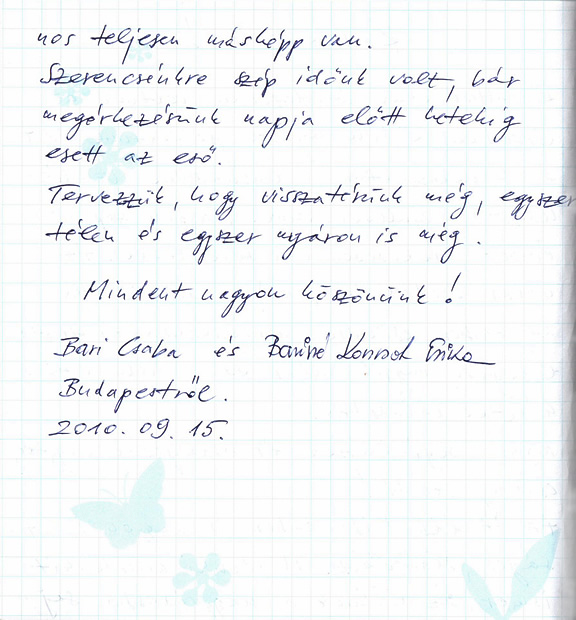 nos teljesen másképp van.
Szerencsénkre szép időnk volt, bár
megérkezésünk napja előtt hetekig
esett az eső.
Tervezzük, hogy visszatérünk még, egyszer
télen és egyszer nyáron is még.
Mindent nagyon köszönünk!
Bari Csaba és Bariné Erika
Budapestről.
2010. 09. 15.